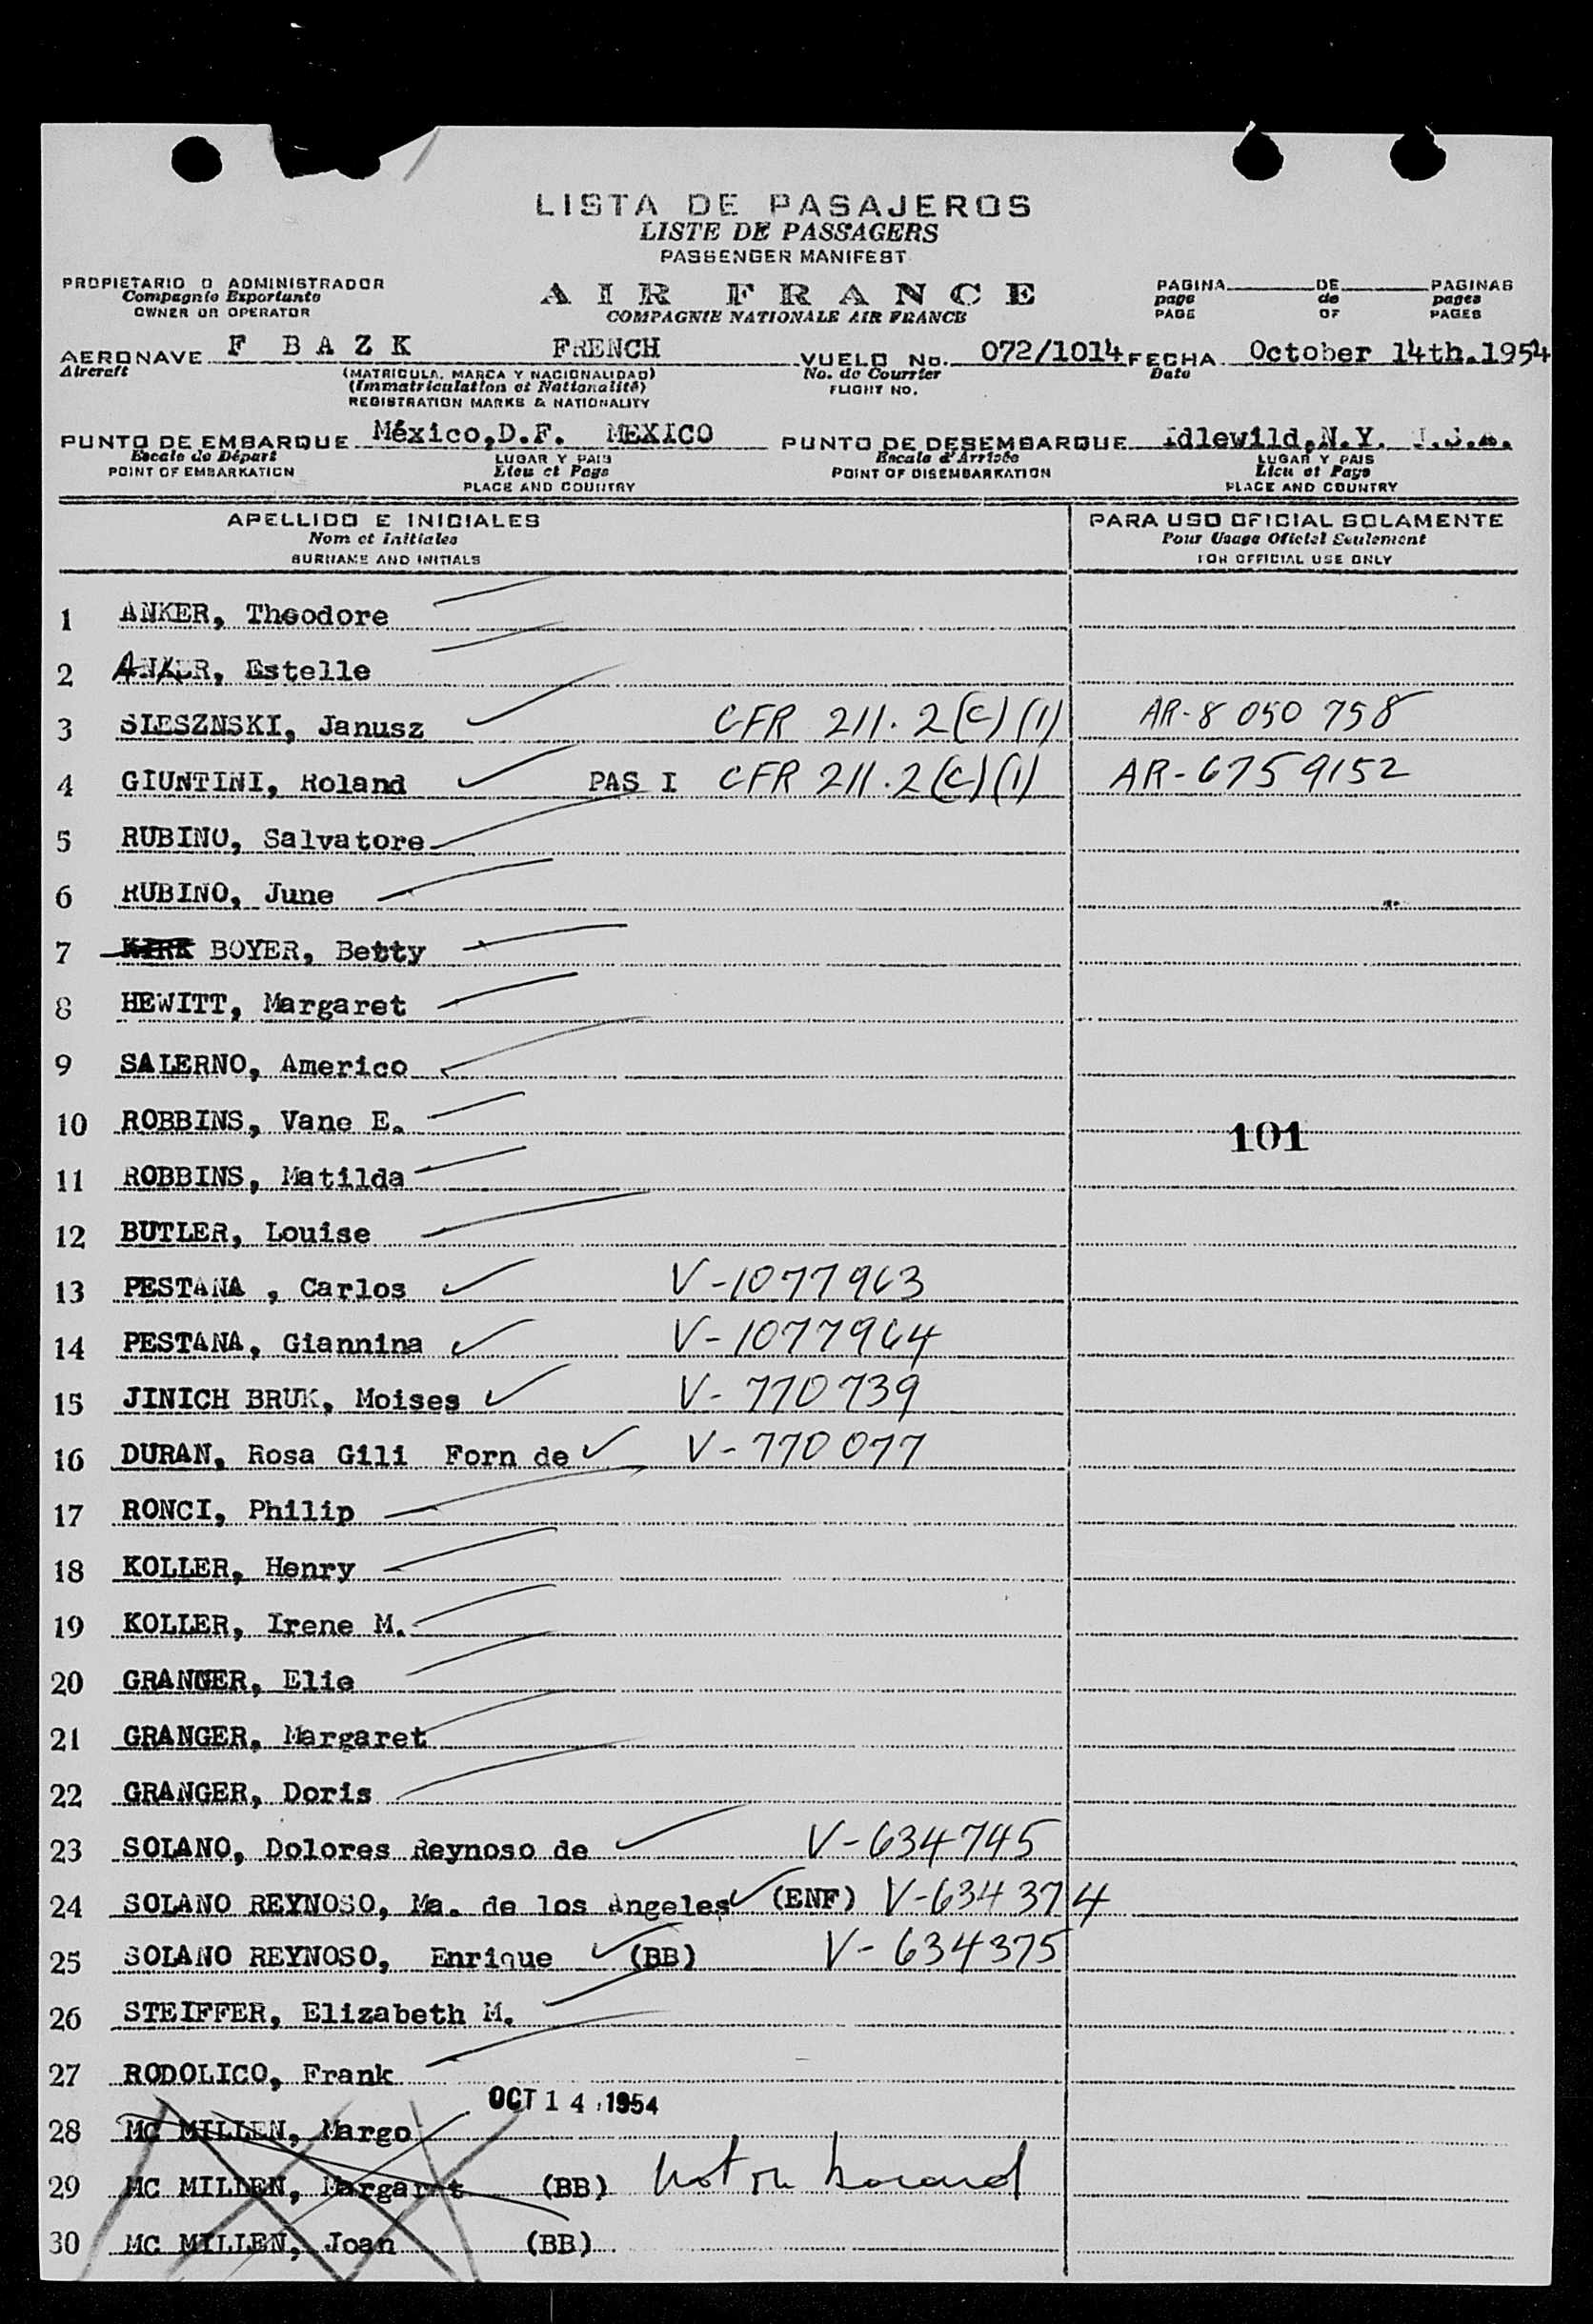 LISTA DE PASAJEROS
LISTE DE PASSAGERS
PASSENGER MANIFEST
PROPIETARIO O ADMINISTRADOR
Compagnie Exportante
OWNER OR OPERATOR
AIR FRANCE
COMPAGNIE NATIONALE AIR FRANCE
PAGINA DE PAGINAS
page de pages
PAGE OF PAGES
AERONAVE F BAZK FRENCH VUELO No. 072/1014 FECHA October 14th.1954
Aircraft (MATRICULA, MARCA Y NACIONALIDAD) No. de Courrier Date
(Immatriculation et Nationalité) FLIGHT NO.
REGISTRATION MARKS & NATIONALITY
PUNTO DE EMBARQUE México,D.F. MEXICO PUNTO DE DESEMBARQUE Idlewild,N.Y. U.S.A.
Escale de Départ LUGAR Y PAIS Escale d'Arrivée LUGAR Y PAIS
POINT OF EMBARKATION Lieu et Pays POINT OF DISEMBARKATION Lieu et Pays
PLACE AND COUNTRY PLACE AND COUNTRY
APELLIDO E INICIALES PARA USO OFICIAL SOLAMENTE
Nom et Initiales Pour Usage Oficiel Seulement
SURNAME AND INITIALS FOR OFFICIAL USE ONLY
1 ANKER, Theodore
2 ANKER, Estelle
3 SIESZNSKI, Janusz CFR 211.2(C)(1) AR-8 050 758
4 GIUNTINI, Roland PAS I CFR 211.2(C)(1) AR-6759152
5 RUBINO, Salvatore
6 RUBINO, June
7 KIRK BOYER, Betty
8 HEWITT, Margaret
9 SALERNO, Americo
10 ROBBINS, Vane E.
101
11 ROBBINS, Matilda
12 BUTLER, Louise
13 PESTANA , Carlos V-1077963
14 PESTANA, Giannina V-1077964
15 JINICH BRUK, Moises V-770739
16 DURAN, Rosa Gili Forn de V-770077
17 RONCI, Philip
18 KOLLER, Henry
19 KOLLER, Irene M.
20 GRANGER, Elie
21 GRANGER, Margaret
22 GRANGER, Doris
23 SOLANO, Dolores Reynoso de V-634745
24 SOLANO REYNOSO, Ma. de los Angeles (ENF) V-634374
25 SOLANO REYNOSO, Enrique (BB) V-634375
26 STEIFFER, Elizabeth M.
27 RODOLICO, Frank
OCT 14 1954
28 MC MILLEN, Margo
29 MC MILLEN, Margaret (BB) not on board
30 MC MILLEN, Joan (BB)